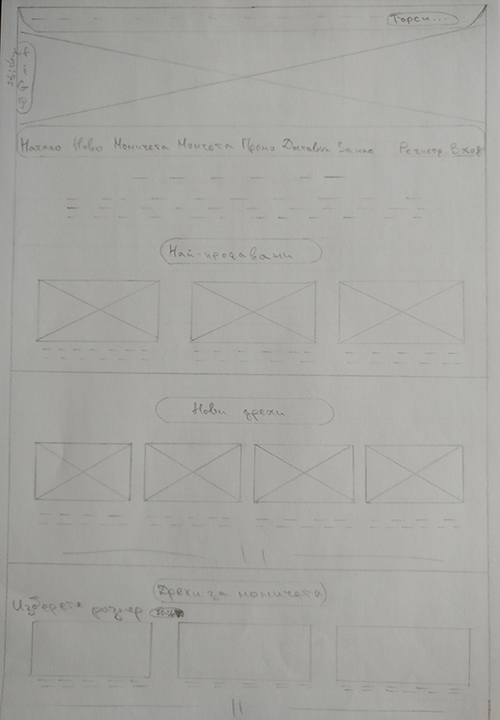 Търси...
Начало Ново Момичета Момчета Промо Доставка За нас Регистр. Вход
Най-продавани
Нови дрехи
Дрехи за момичета
Изберете размер